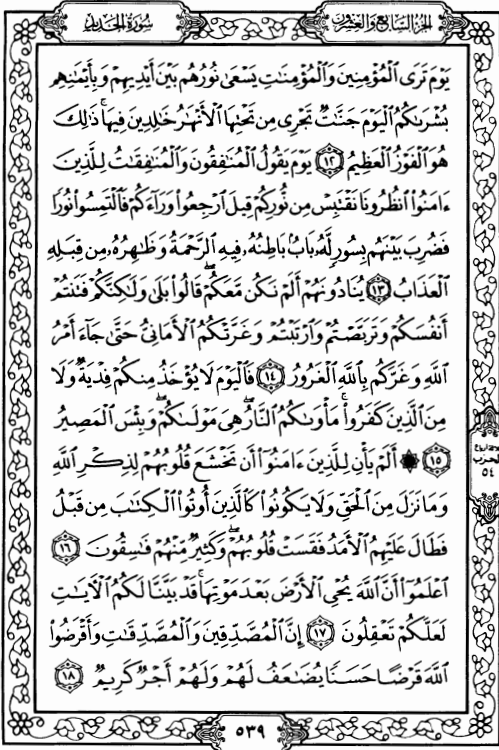 سُورَةُ الحَدِيدِ
الجُزْءُ السَّابِعُ وَالعِشْرُونَ
يَوْمَ تَرَى ٱلْمُؤْمِنِينَ وَٱلْمُؤْمِنَٰتِ يَسْعَىٰ نُورُهُم بَيْنَ أَيْدِيهِمْ وَبِأَيْمَٰنِهِم
بُشْرَىٰكُمُ ٱلْيَوْمَ جَنَّٰتٌ تَجْرِى مِن تَحْتِهَا ٱلْأَنْهَٰرُ خَٰلِدِينَ فِيهَا ۚ ذَٰلِكَ
هُوَ ٱلْفَوْزُ ٱلْعَظِيمُ ١٢ يَوْمَ يَقُولُ ٱلْمُنَٰفِقُونَ وَٱلْمُنَٰفِقَٰتُ لِلَّذِينَ
ءَامَنُوا۟ ٱنظُرُونَا نَقْتَبِسْ مِن نُّورِكُمْ قِيلَ ٱرْجِعُوا۟ وَرَآءَكُمْ فَٱلْتَمِسُوا۟ نُورًا
فَضُرِبَ بَيْنَهُم بِسُورٍ لَّهُۥ بَابٌۢ بَاطِنُهُۥ فِيهِ ٱلرَّحْمَةُ وَظَٰهِرُهُۥ مِن قِبَلِهِ
ٱلْعَذَابُ ١٣ يُنَادُونَهُمْ أَلَمْ نَكُن مَّعَكُمْ ۖ قَالُوا۟ بَلَىٰ وَلَٰكِنَّكُمْ فَتَنتُمْ
أَنفُسَكُمْ وَتَرَبَّصْتُمْ وَٱرْتَبْتُمْ وَغَرَّتْكُمُ ٱلْأَمَانِىُّ حَتَّىٰ جَآءَ أَمْرُ
ٱللَّهِ وَغَرَّكُم بِٱللَّهِ ٱلْغَرُورُ ١٤ فَٱلْيَوْمَ لَا يُؤْخَذُ مِنكُمْ فِدْيَةٌ وَلَا
مِنَ ٱلَّذِينَ كَفَرُوا۟ ۚ مَأْوَىٰكُمُ ٱلنَّارُ ۖ هِىَ مَوْلَىٰكُمْ ۖ وَبِئْسَ ٱلْمَصِيرُ
١٥ ۞ أَلَمْ يَأْنِ لِلَّذِينَ ءَامَنُوٓا۟ أَن تَخْشَعَ قُلُوبُهُمْ لِذِكْرِ ٱللَّهِ
وَمَا نَزَلَ مِنَ ٱلْحَقِّ وَلَا يَكُونُوا۟ كَٱلَّذِينَ أُوتُوا۟ ٱلْكِتَٰبَ مِن قَبْلُ
فَطَالَ عَلَيْهِمُ ٱلْأَمَدُ فَقَسَتْ قُلُوبُهُمْ ۖ وَكَثِيرٌ مِّنْهُمْ فَٰسِقُونَ ١٦
ٱعْلَمُوٓا۟ أَنَّ ٱللَّهَ يُحْىِ ٱلْأَرْضَ بَعْدَ مَوْتِهَا ۚ قَدْ بَيَّنَّا لَكُمُ ٱلْءَايَٰتِ
لَعَلَّكُمْ تَعْقِلُونَ ١٧ إِنَّ ٱلْمُصَّدِّقِينَ وَٱلْمُصَّدِّقَٰتِ وَأَقْرَضُوا۟
ٱللَّهَ قَرْضًا حَسَنًا يُضَٰعَفُ لَهُمْ وَلَهُمْ أَجْرٌ كَرِيمٌ ١٨
الحزب
٥٤
٥٣٩